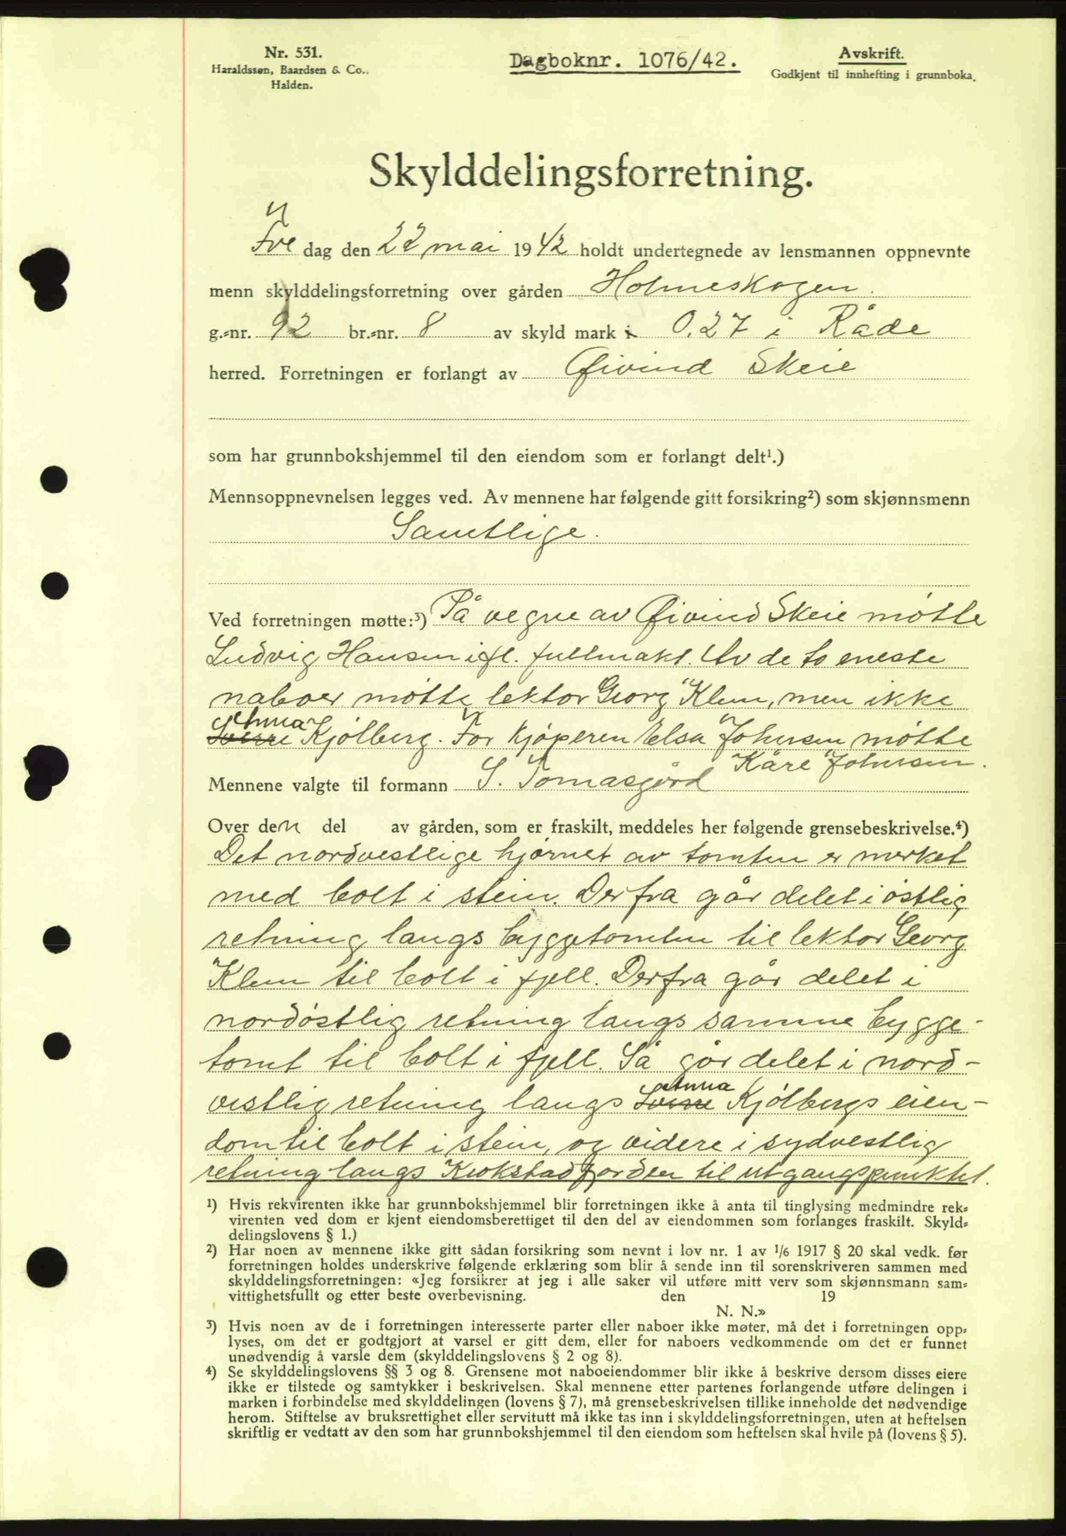 Nr. 531.
Haraldssøn, Baardsen & Co..
Halden.
Dagboknr. 1076/42.
Avskrift.
Godkjent til innhefting i grunnboka.
Skylddelingsforretning.
Fre dag den 22 mai 1942 holdt undertegnede av lensmannen oppnevnte
menn skylddelingsforretning over gården Holmeskogen.
g.-nr. 92 br.-nr. 8 av skyld mark 0.27 i Råde
herred. Forretningen er forlangt av Øivind Skeie
som har grunnbokshjemmel til den eiendom som er forlangt delt¹.)
Mennsoppnevnelsen legges ved. Av mennene har følgende gitt forsikring²) som skjønnsmenn
Samtlige.
Ved forretningen møtte:³) På vegne av Øivind Skeie møtte
Ludvig Hansen ifl. fullmakt. Av de to eneste
naboer møtte lektor Georg Klem, men ikke
Anna
Sverre Kjölberg. For kjöperen Elsa Johnsen møtte
Kåre Johnsen.
Mennene valgte til formann S. Tomasgård
Over den del av gården, som er fraskilt, meddeles her følgende grensebeskrivelse.⁴)
Det nordvestlige hjørnet av tomten er merket
med bolt i stein. Derfra går delet i östlig
retning langs byggetomten til lektor Georg
Klem til bolt i fjell. Derfra går delet i
nordøstlig retning langs samme bygge-
tomt til bolt i fjell. Så går delet i nord-
Anna
vestlig retning langs Sverre Kjölbergs eien-
dom til bolt i stein, og videre i sydvestlig
retning langs Krokstadfjorden til utgangspunktet.
¹) Hvis rekvirenten ikke har grunnbokshjemmel blir forretningen ikke å anta til tinglysing medmindre rek-
virenten ved dom er kjent eiendomsberettiget til den del av eiendommen som forlanges fraskilt. Skyld-
delingslovens § 1.)
²) Har noen av mennene ikke gitt sådan forsikring som nevnt i lov nr. 1 av 1/6 1917 § 20 skal vedk. før
forretningen holdes underskrive følgende erklæring som blir å sende inn til sorenskriveren sammen med
skylddelingsforretningen: «Jeg forsikrer at jeg i alle saker vil utføre mitt verv som skjønnsmann sam-
vittighetsfullt og etter beste overbevisning. den 19
N. N.»
³) Hvis noen av de i forretningen interesserte parter eller naboer ikke møter, må det i forretningen opp-
lyses, om det er godtgjort at varsel er gitt dem, eller for naboers vedkommende om det er funnet
unødvendig å varsle dem (skylddelingslovens § 2 og 8).
⁴) Se skylddelingslovens §§ 3 og 8. Grensene mot naboeiendommer blir ikke å beskrive dersom disses eiere
ikke er tilstede og samtykker i beskrivelsen. Skal mennene etter partenes forlangende utføre delingen i
marken i forbindelse med skylddelingen (lovens § 7), må grensebeskrivelsen tillike inneholde det nødvendige
herom. Stiftelse av bruksrettighet eller servitutt må ikke tas inn i skylddelingsforretningen, uten at heftelsen
skriftlig er vedtatt av den som har grunnbokshjemmel til den eiendom som heftelsen skal hvile på (lovens § 5).